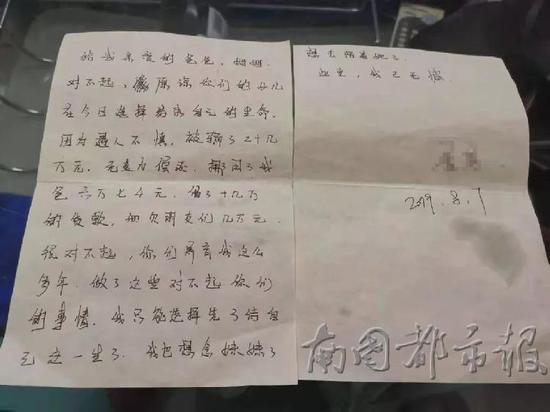 给我亲爱的爸爸、妈妈
对不起,原谅你们的女儿
在今日选择结束自己的生命
因为遇人不慎,被骗了二十几
万元。无力偿还,挪用了我
爸六万七千元,借了十几万
的贷款,加欠朋友们几万元
很对不起,你们养育我这么
多年,做了这些对不起你们
的事情。我只能选择先了结自
己这一生了。我也想念妹妹了
想去陪着她了
这里,我已无憾
2019.8.7
南国都市报